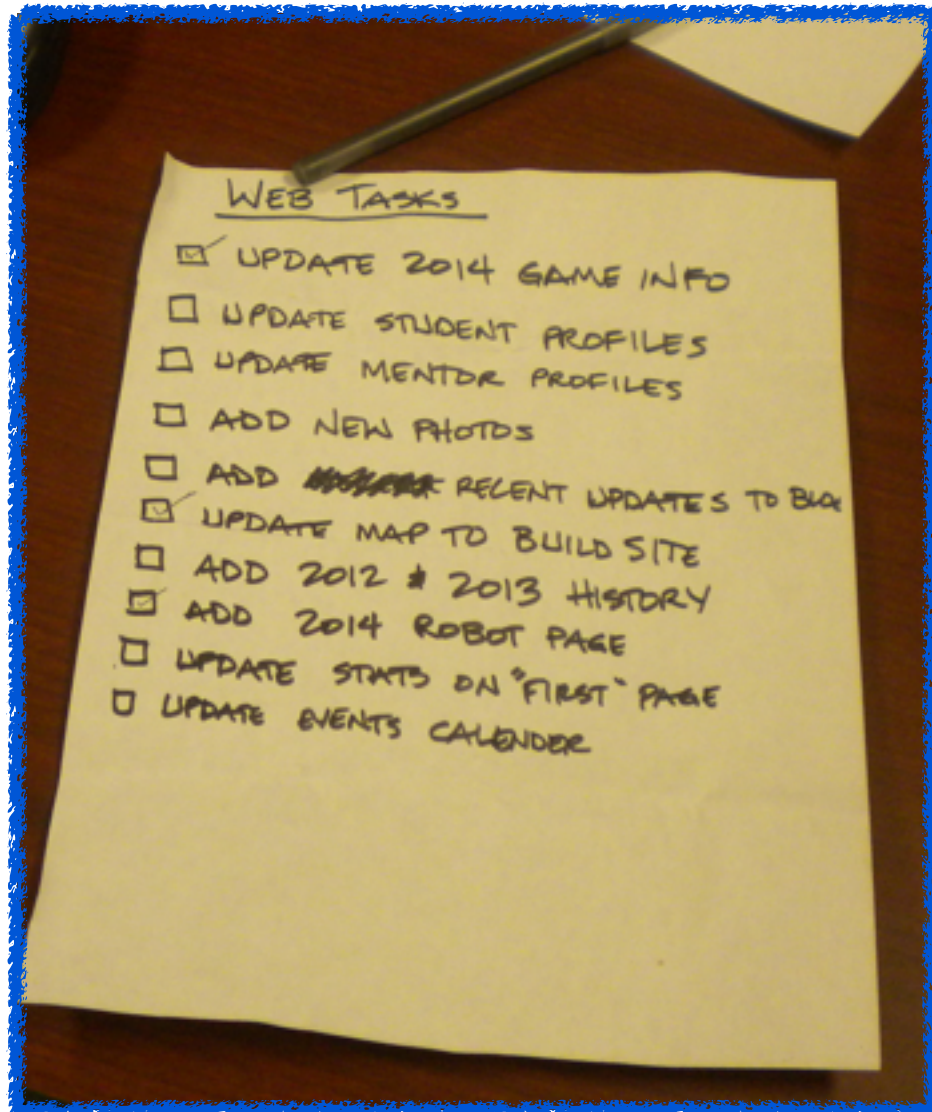 WEB TASKS
UPDATE 2014 GAME INFO
UPDATE STUDENT PROFILES
UPDATE MENTOR PROFILES
ADD NEW PHOTOS
ADD RECENT UPDATES TO BLOG
UPDATE MAP TO BUILD SITE
ADD 2012 & 2013 HISTORY
ADD 2014 ROBOT PAGE
UPDATE STATS ON "FIRST" PAGE
UPDATE EVENTS CALENDER